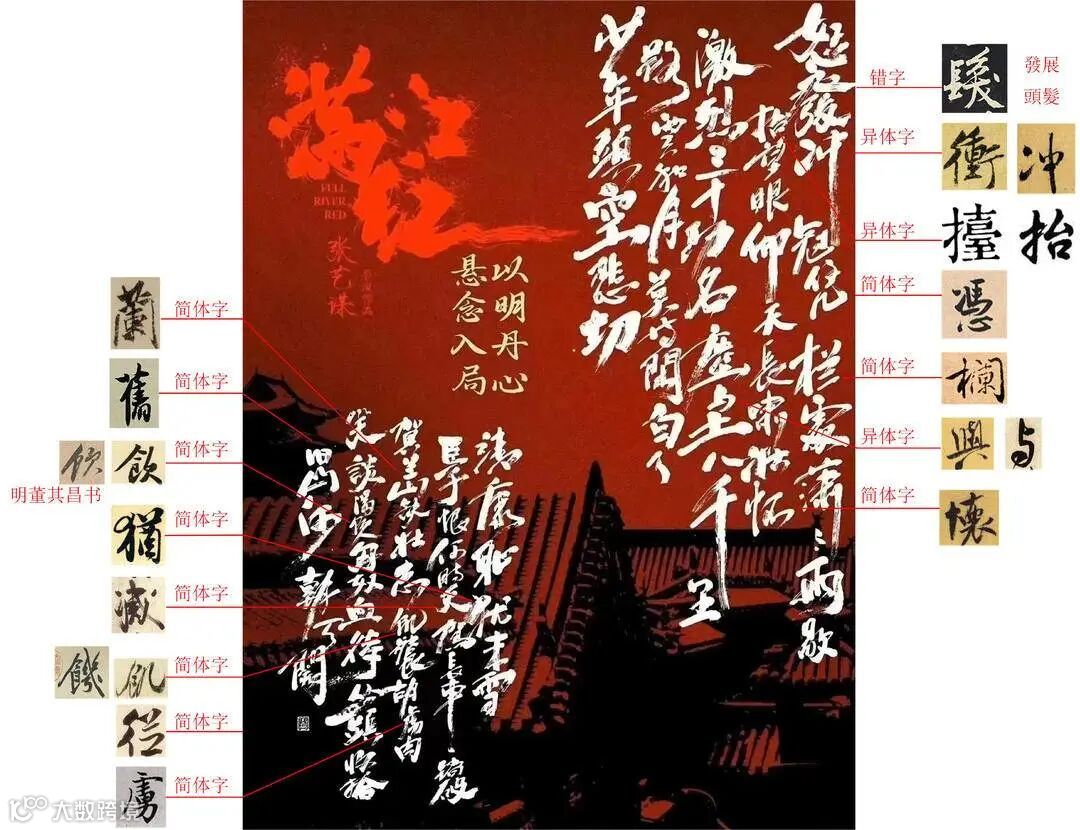 满江红
FULL
RIVER
RED
张艺谋
以明丹心
悬念入局
怒發冲冠凭栏處潇〻雨歇
抬望眼仰天長啸壮怀
激烈三十功名塵与土八千里
路雲和月莫等閒白了
少年頭空悲切
靖康耻犹未雪
臣子恨何時灭駕長車
賀兰山缺壮志飢餐胡虏肉
笑談渴饮匈奴血待從頭收拾
旧山河朝天闕
错字 髮 發展
頭髮
异体字 衝 冲
异体字 擡 抬
简体字 憑
简体字 欄
异体字 與 与
简体字 懷
蘭 简体字
舊 简体字
飲 飲 简体字
明董其昌书
猶 简体字
滅 简体字
饑 飢 简体字
從 简体字
虜 简体字
大数跨境